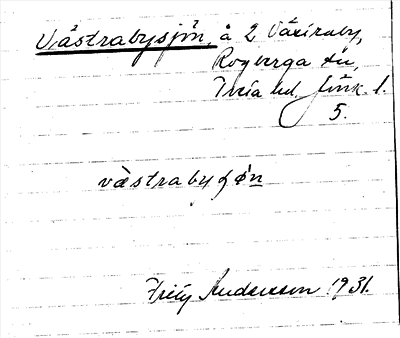 Västrabysjön, å 2 Växiraby,
Rogberga sn,
Tveta hd, Jönk. l.
5.
västrabyʃön
Fritz Andersson 1931.